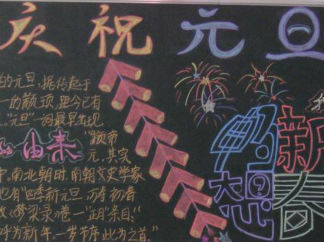 庆祝元旦
的元旦，据传起于
的颛顼，距今已有
"元旦"一词最早出现
的由来
南北朝时，南朝文史学家
也有"四季新元旦，万寿初春
梦梁录》卷一"正月"条目：
呼为新年，一岁节序，此为之首。"
畅想
新春